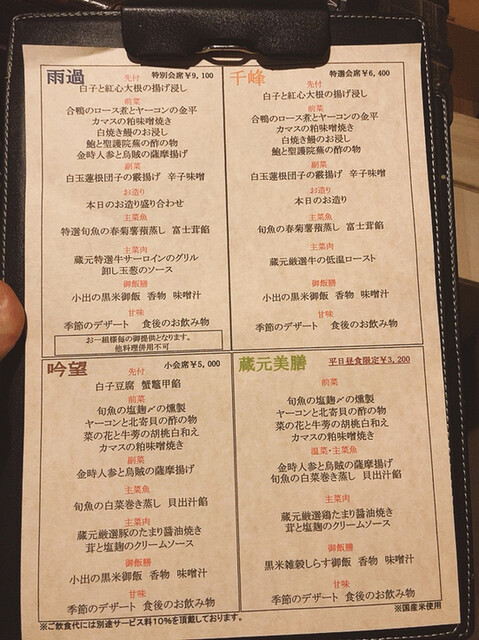 雨過 特別会席￥9,100
先付
白子と紅心大根の揚げ浸し
前菜
合鴨のロース煮とヤーコンの金平
カマスの粕味噌焼き
白焼き鰻のお浸し
鮑と聖護院蕪の酢の物
金時人参と烏賊の薩摩揚げ
副菜
白玉蓮根団子の霰揚げ 辛子味噌
お造り
本日のお造り盛り合わせ
主菜魚
特選旬魚の春菊薯蕷蒸し 富士茸餡
主菜肉
蔵元特選牛サーロインのグリル
卸し玉葱のソース
御飯膳
小出の黒米御飯 香物 味噌汁
甘味
季節のデザート 食後のお飲み物
お一組様毎の御提供となります。
他料理併用不可
千峰 特選会席￥6,400
先付
白子と紅心大根の揚げ浸し
前菜
合鴨のロース煮とヤーコンの金平
カマスの粕味噌焼き
白焼き鰻のお浸し
鮑と聖護院蕪の酢の物
副菜
白玉蓮根団子の霰揚げ 辛子味噌
お造り
本日のお造り
主菜魚
旬魚の春菊薯蕷蒸し 富士茸餡
主菜肉
蔵元厳選牛の低温ロースト
御飯膳
小出の黒米御飯 香物 味噌汁
甘味
季節のデザート 食後のお飲み物
吟望 小会席￥5,000
先付
白子豆腐 蟹鼈甲餡
前菜
旬魚の塩麹〆の燻製
ヤーコンと北寄貝の酢の物
菜の花と牛蒡の胡桃白和え
カマスの粕味噌焼き
副菜
金時人参と烏賊の薩摩揚げ
主菜魚
旬魚の白菜巻き蒸し 貝出汁餡
主菜肉
蔵元厳選豚のたまり醤油焼き
茸と塩麹のクリームソース
御飯膳
小出の黒米御飯 香物 味噌汁
甘味
季節のデザート 食後のお飲み物
蔵元美膳 平日昼食限定￥3,200
前菜
旬魚の塩麹〆の燻製
ヤーコンと北寄貝の酢の物
菜の花と牛蒡の胡桃白和え
カマスの粕味噌焼き
温菜・主菜魚
金時人参と烏賊の薩摩揚げ
旬魚の白菜巻き蒸し 貝出汁餡
主菜肉
蔵元厳選鶏のたまり醤油焼き
茸と塩麹のクリームソース
御飯膳
黒米雑穀しらす御飯 香物 味噌汁
甘味
季節のデザート 食後のお飲み物
※国産米使用
※ご飲食代には別途サービス料10％を頂戴しております。